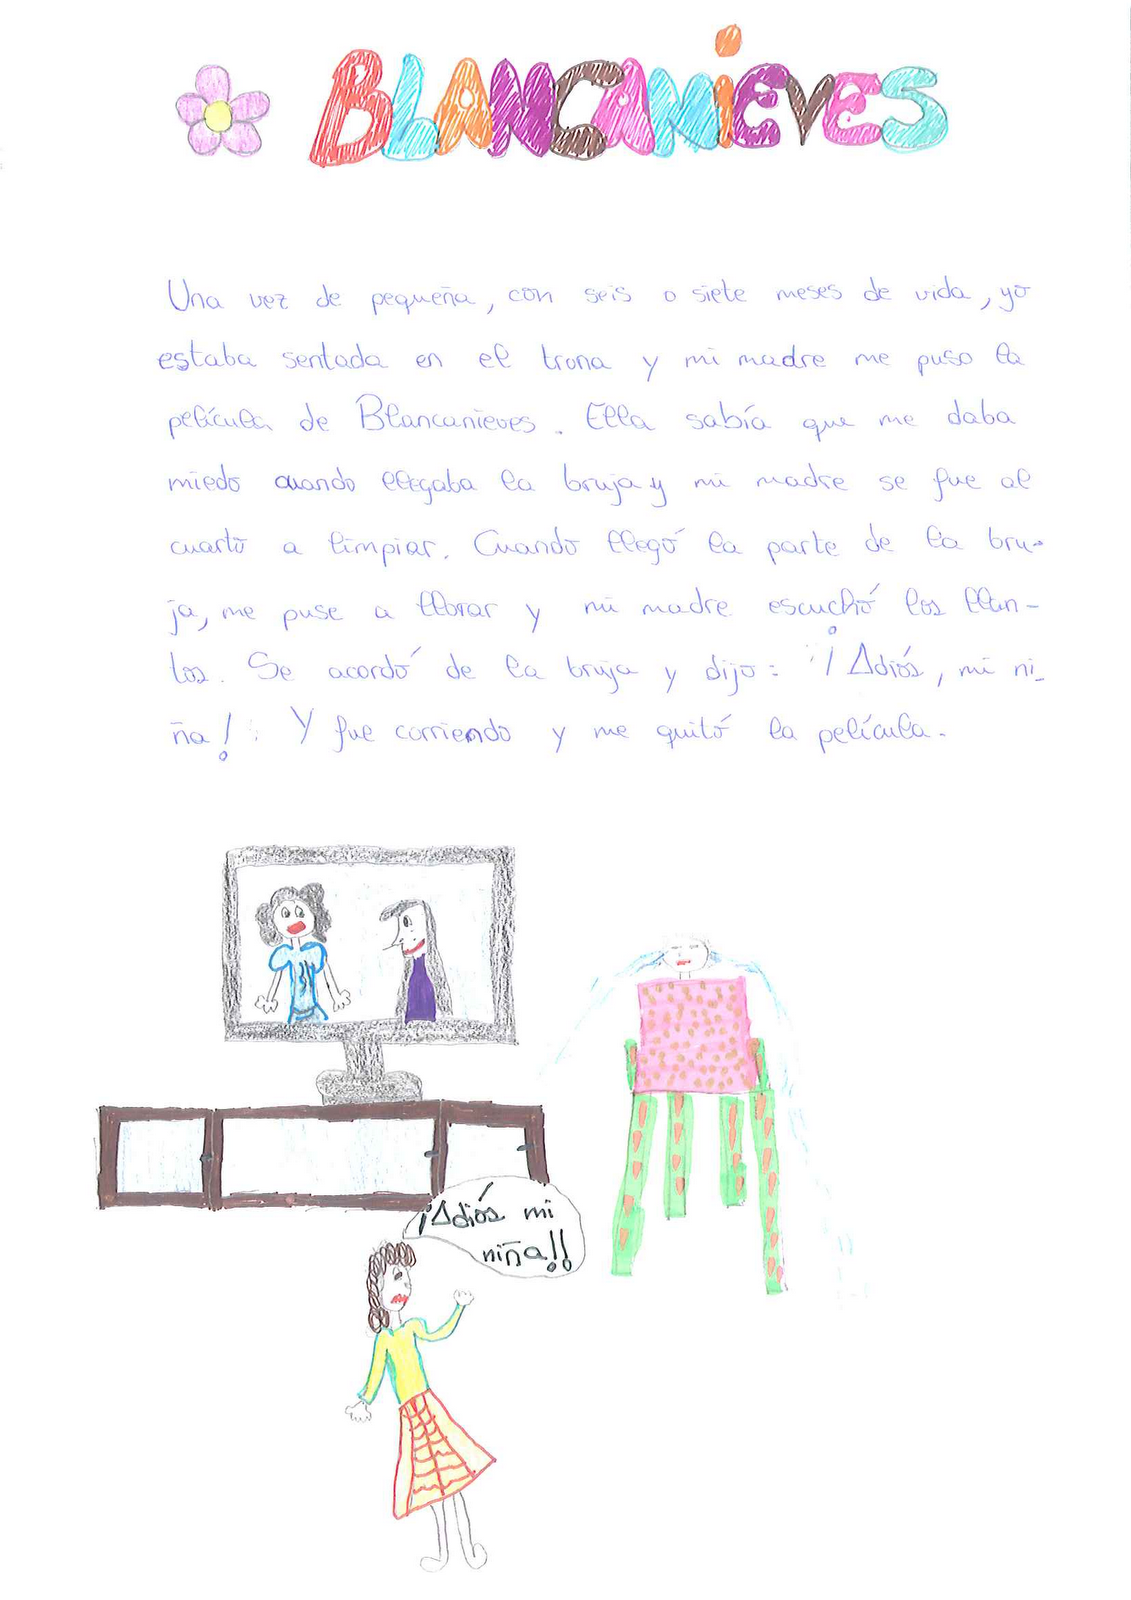 BLANCANiEVES
Una vez de pequeña, con seis o siete meses de vida, yo
estaba sentada en el trona y mi madre me puso la
película de Blancanieves. Ella sabía que me daba
miedo cuando llegaba la bruja y mi madre se fue al
cuarto a limpiar. Cuando llegó la parte de la bru-
ja, me puse a llorar y mi madre escuchó los llan-
tos. Se acordó de la bruja y dijo: ¡Adiós, mi ni-
ña! Y fue corriendo y me quitó la película.
¡Adiós mi
niña!!